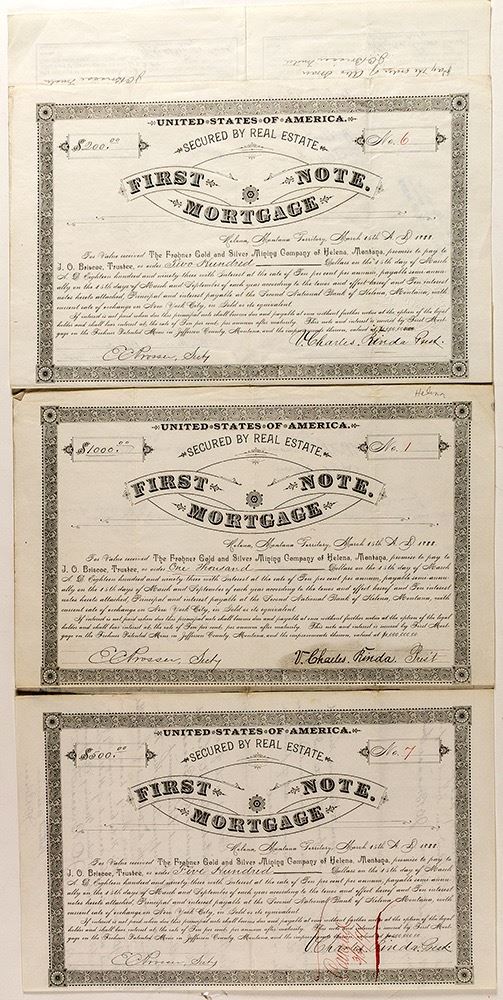 Pay the order of
J O Briscoe Trustee
J O Briscoe Trustee
UNITED STATES OF AMERICA.
$200.00
SECURED BY REAL ESTATE.
No. 6
FIRST NOTE.
MORTGAGE
Helena, Montana Territory, March 15th A. D. 1888.
For Value received The Frohner Gold and Silver Mining Company of Helena, Montana, promise to pay to
J. O. Briscoe, Trustee, or order Two Hundred Dollars on the 15th day of March
A. D. Eighteen hundred and ninety three with interest at the rate of Ten per cent per annum, payable semi-annu-
ally on the 15th days of March and September of each year according to the tenor and effect hereof and Ten interest
notes hereto attached, Principal and interest payable at the Second National Bank of Helena, Montana, with
current rate of exchange on New York City, in Gold or its equivalent.
If interest is not paid when due this principal note shall become due and payable at once without further notice at the option of the legal
holder and shall bear interest at the rate of Ten per cent. per annum after maturity. This note and interest is secured by First Mort-
gage on the Frohner Patented Mines in Jefferson County, Montana, and the improvements thereon, valued at $1,000,000.00
V. Charles Rinda Prest.
E C Prosser, Secty
Helena
UNITED STATES OF AMERICA.
$1000.00
SECURED BY REAL ESTATE.
No. 1
FIRST NOTE.
MORTGAGE
Helena, Montana Territory, March 15th A. D. 1888.
For Value received The Frohner Gold and Silver Mining Company of Helena, Montana, promise to pay to
J. O. Briscoe, Trustee, or order One Thousand Dollars on the 15th day of March
A. D. Eighteen hundred and ninety three with interest at the rate of Ten per cent per annum, payable semi-annu-
ally on the 15th days of March and September of each year according to the tenor and effect hereof and Ten interest
notes hereto attached, Principal and interest payable at the Second National Bank of Helena, Montana, with
current rate of exchange on New York City, in Gold or its equivalent.
If interest is not paid when due this principal note shall become due and payable at once without further notice at the option of the legal
holder and shall bear interest at the rate of Ten per cent. per annum after maturity. This note and interest is secured by First Mort-
gage on the Frohner Patented Mines in Jefferson County, Montana, and the improvements thereon, valued at $1,000,000.00
E C Prosser, Secty V. Charles Rinda Pres't
UNITED STATES OF AMERICA.
$500.00
SECURED BY REAL ESTATE.
No. 7
FIRST NOTE.
MORTGAGE
Helena, Montana Territory, March 15th A. D. 1888.
For Value received The Frohner Gold and Silver Mining Company of Helena, Montana, promise to pay to
J. O. Briscoe, Trustee, or order Five Hundred Dollars on the 15th day of March
A. D. Eighteen hundred and ninety three with interest at the rate of Ten per cent per annum, payable semi-annu-
ally on the 15th days of March and September of each year according to the tenor and effect hereof and Ten interest
notes hereto attached, Principal and interest payable at the Second National Bank of Helena, Montana, with
current rate of exchange on New York City, in Gold or its equivalent.
If interest is not paid when due this principal note shall become due and payable at once without further notice at the option of the legal
holder and shall bear interest at the rate of Ten per cent. per annum after maturity. This note and interest is secured by First Mort-
gage on the Frohner Patented Mines in Jefferson County, Montana, and the improvements thereon, valued at $1,000,000.00
V. Charles Rinda Prest.
E C Prosser, Secty